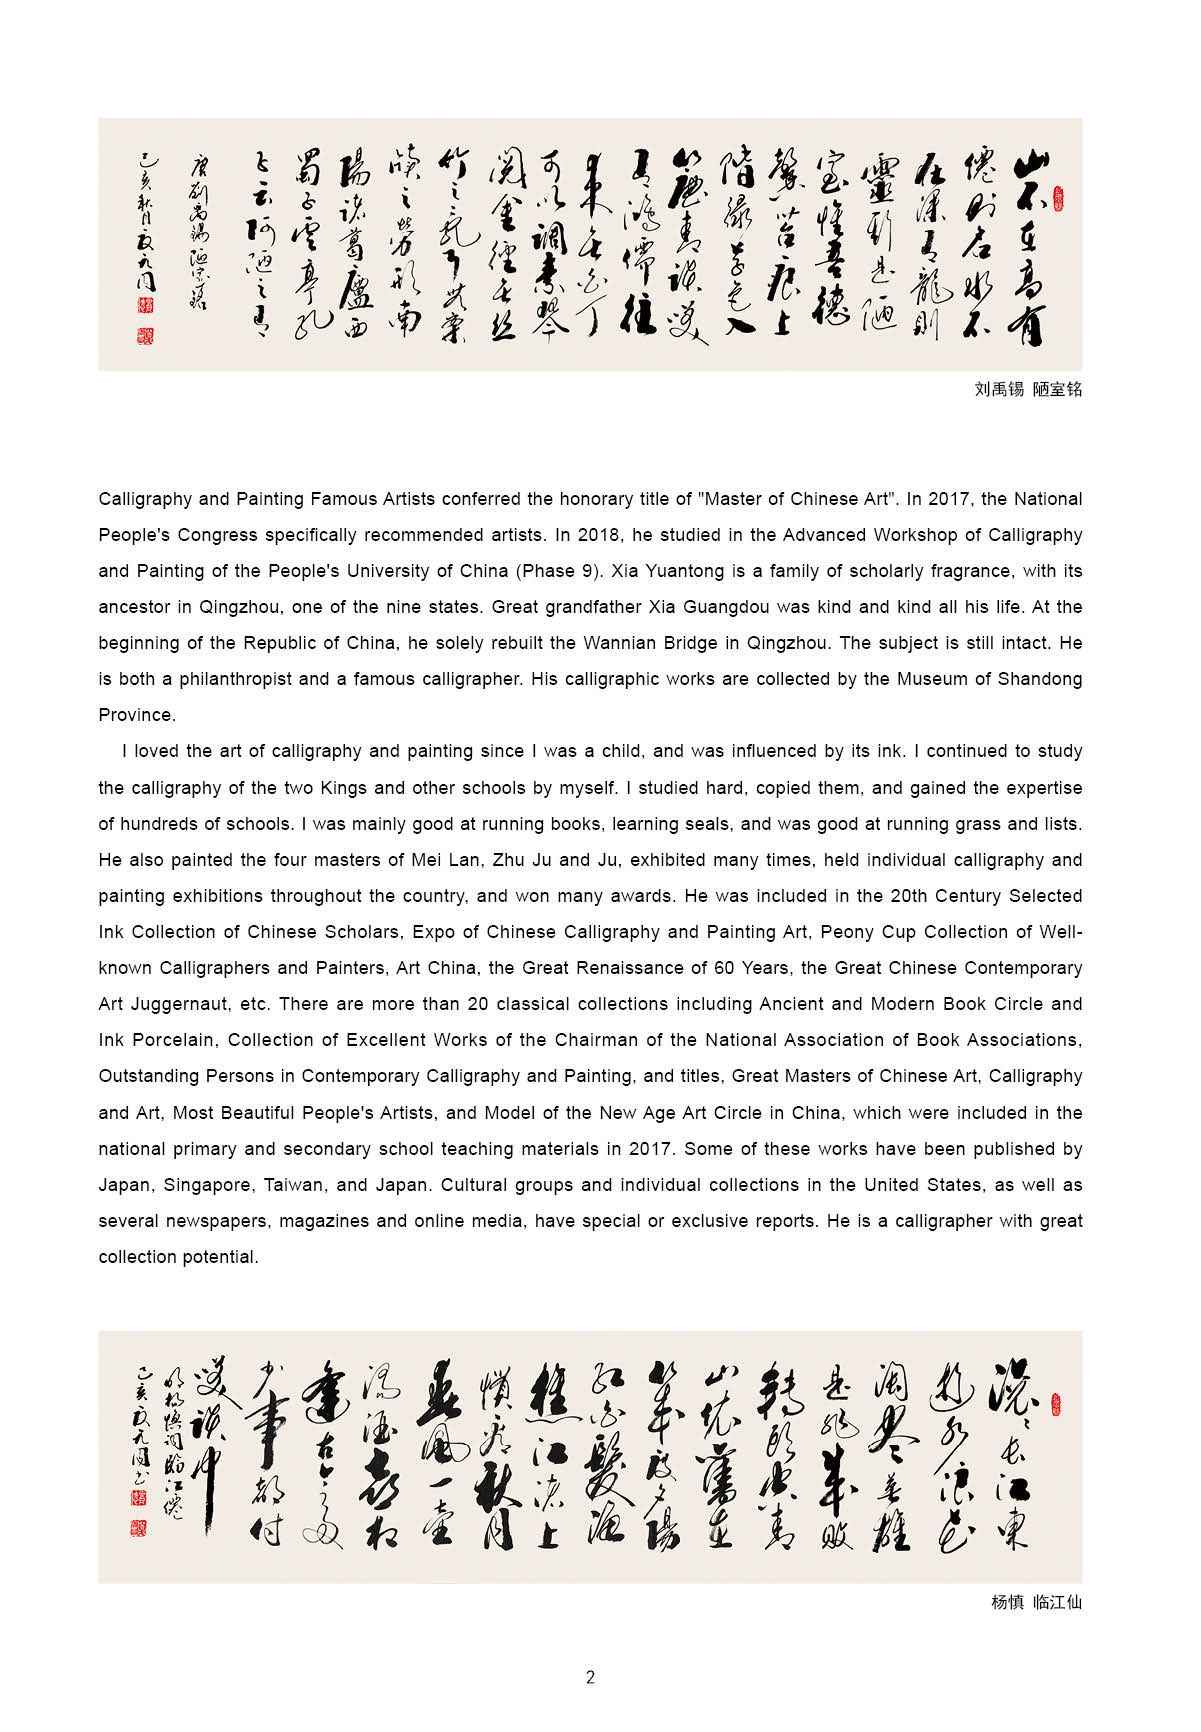 山不在高有
僊則名水不
在深有龍則
靈斯是陋
室惟吾德
馨苔痕上
階緑草色入
簾青談笑
有鴻儒往
來無白丁
可以調素琴
閲金經無絲
竹之亂耳無案
牘之勞形南
陽諸葛廬西
蜀子雲亭孔
子云何陋之有
唐劉禹錫陋室銘
己亥秋月夏元同
刘禹锡 陋室铭
Calligraphy and Painting Famous Artists conferred the honorary title of "Master of Chinese Art". In 2017, the National
People's Congress specifically recommended artists. In 2018, he studied in the Advanced Workshop of Calligraphy
and Painting of the People's University of China (Phase 9). Xia Yuantong is a family of scholarly fragrance, with its
ancestor in Qingzhou, one of the nine states. Great grandfather Xia Guangdou was kind and kind all his life. At the
beginning of the Republic of China, he solely rebuilt the Wannian Bridge in Qingzhou. The subject is still intact. He
is both a philanthropist and a famous calligrapher. His calligraphic works are collected by the Museum of Shandong
Province.
I loved the art of calligraphy and painting since I was a child, and was influenced by its ink. I continued to study
the calligraphy of the two Kings and other schools by myself. I studied hard, copied them, and gained the expertise
of hundreds of schools. I was mainly good at running books, learning seals, and was good at running grass and lists.
He also painted the four masters of Mei Lan, Zhu Ju and Ju, exhibited many times, held individual calligraphy and
painting exhibitions throughout the country, and won many awards. He was included in the 20th Century Selected
Ink Collection of Chinese Scholars, Expo of Chinese Calligraphy and Painting Art, Peony Cup Collection of Well-
known Calligraphers and Painters, Art China, the Great Renaissance of 60 Years, the Great Chinese Contemporary
Art Juggernaut, etc. There are more than 20 classical collections including Ancient and Modern Book Circle and
Ink Porcelain, Collection of Excellent Works of the Chairman of the National Association of Book Associations,
Outstanding Persons in Contemporary Calligraphy and Painting, and titles, Great Masters of Chinese Art, Calligraphy
and Art, Most Beautiful People's Artists, and Model of the New Age Art Circle in China, which were included in the
national primary and secondary school teaching materials in 2017. Some of these works have been published by
Japan, Singapore, Taiwan, and Japan. Cultural groups and individual collections in the United States, as well as
several newspapers, magazines and online media, have special or exclusive reports. He is a calligrapher with great
collection potential.
滾滾長江東
逝水浪花
淘盡英雄
是非成敗
轉頭空青
山依舊在
幾度夕陽
紅白髮漁
樵江渚上
慣看秋月
春風一壺
濁酒喜相
逢古今多
少事都付
笑談中
明楊慎詞臨江僊
己亥夏元同书
杨慎 临江仙
2